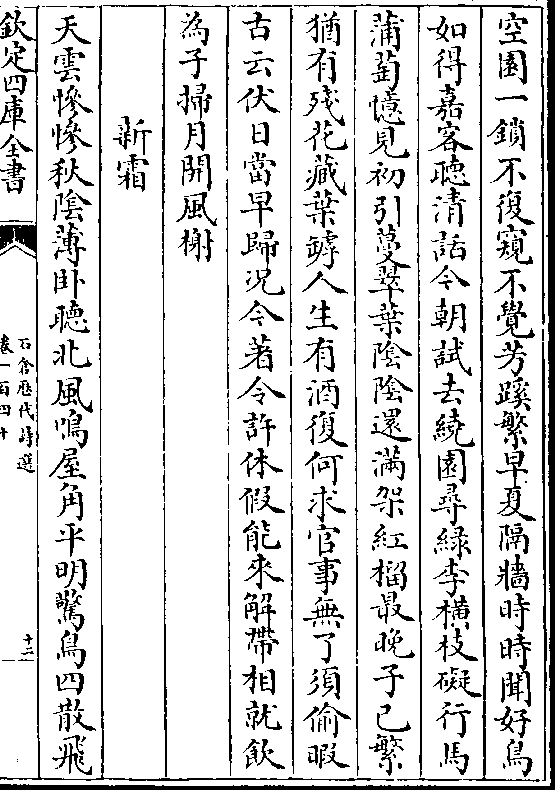 空園一鎖不復窺不覺芳蹊繁早夏隔牆時時聞好鳥
如得嘉客聽清話今朝試去繞園尋綠李橫枝礙行馬
蒲萄憶見初引蔓翠葉陰陰還滿架紅榴最晚子已繁
猶有殘花藏葉罅人生有酒復何求官事無了須偷暇
古云伏日當早歸况今著令許休假能來解帶相就飲
為子掃月開風榭
新霜
天雲慘慘秋陰薄卧聽北風鳴屋角平明驚鳥四散飛
欽定四庫全書
石倉歷代詩選
卷一百四十
十二